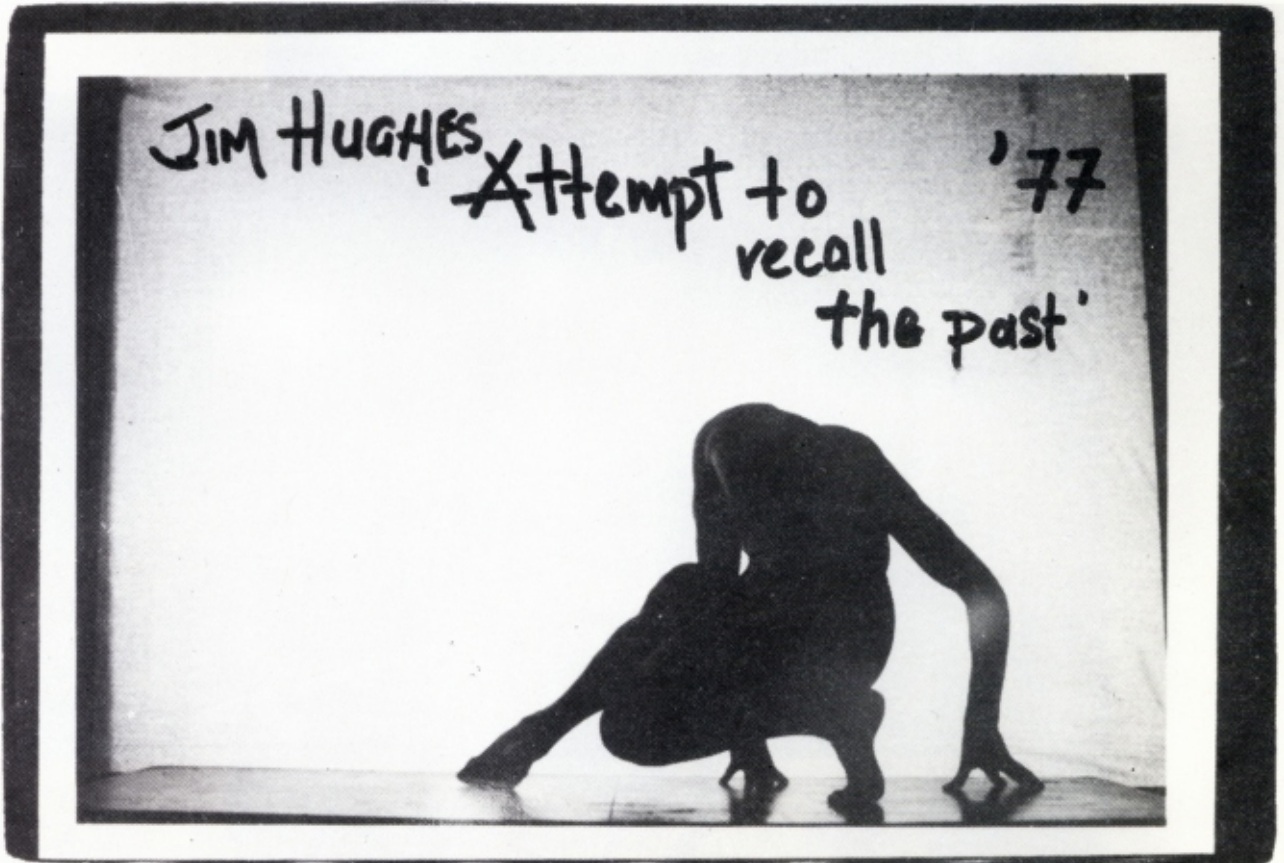 JIM HUGHES '77
'Attempt to
recall
the past'